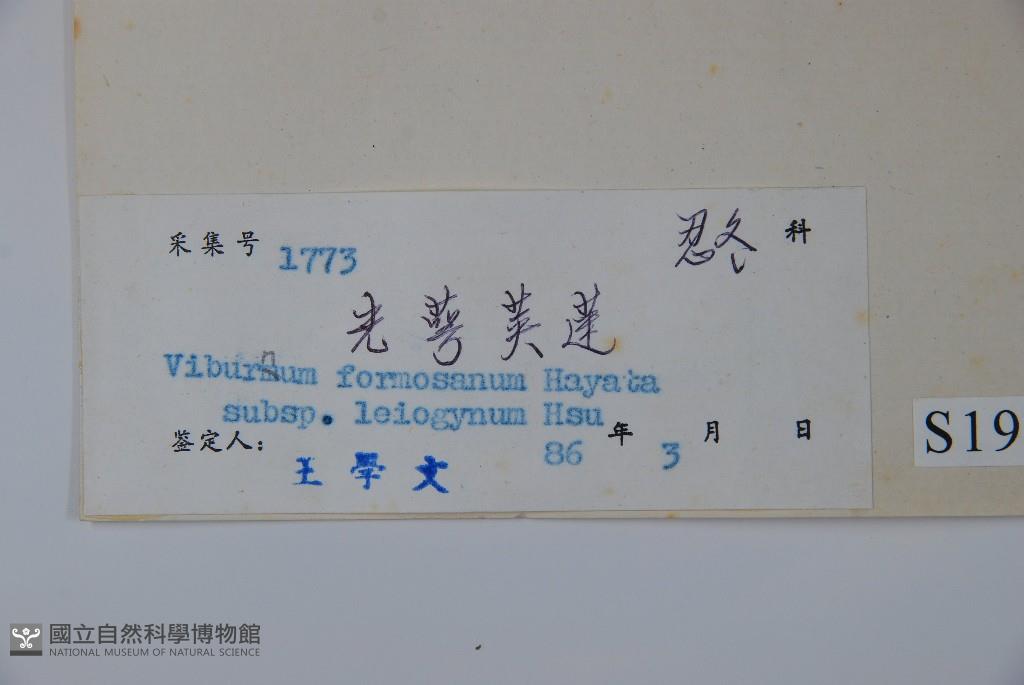 采集号 1773 忍冬 科
光萼荚蒾
Viburnum formosanum Hayata
subsp. leiogynum Hsu
鉴定人: 王學文 86 年 3 月 日
S19
國立自然科學博物館
NATIONAL MUSEUM OF NATURAL SCIENCE